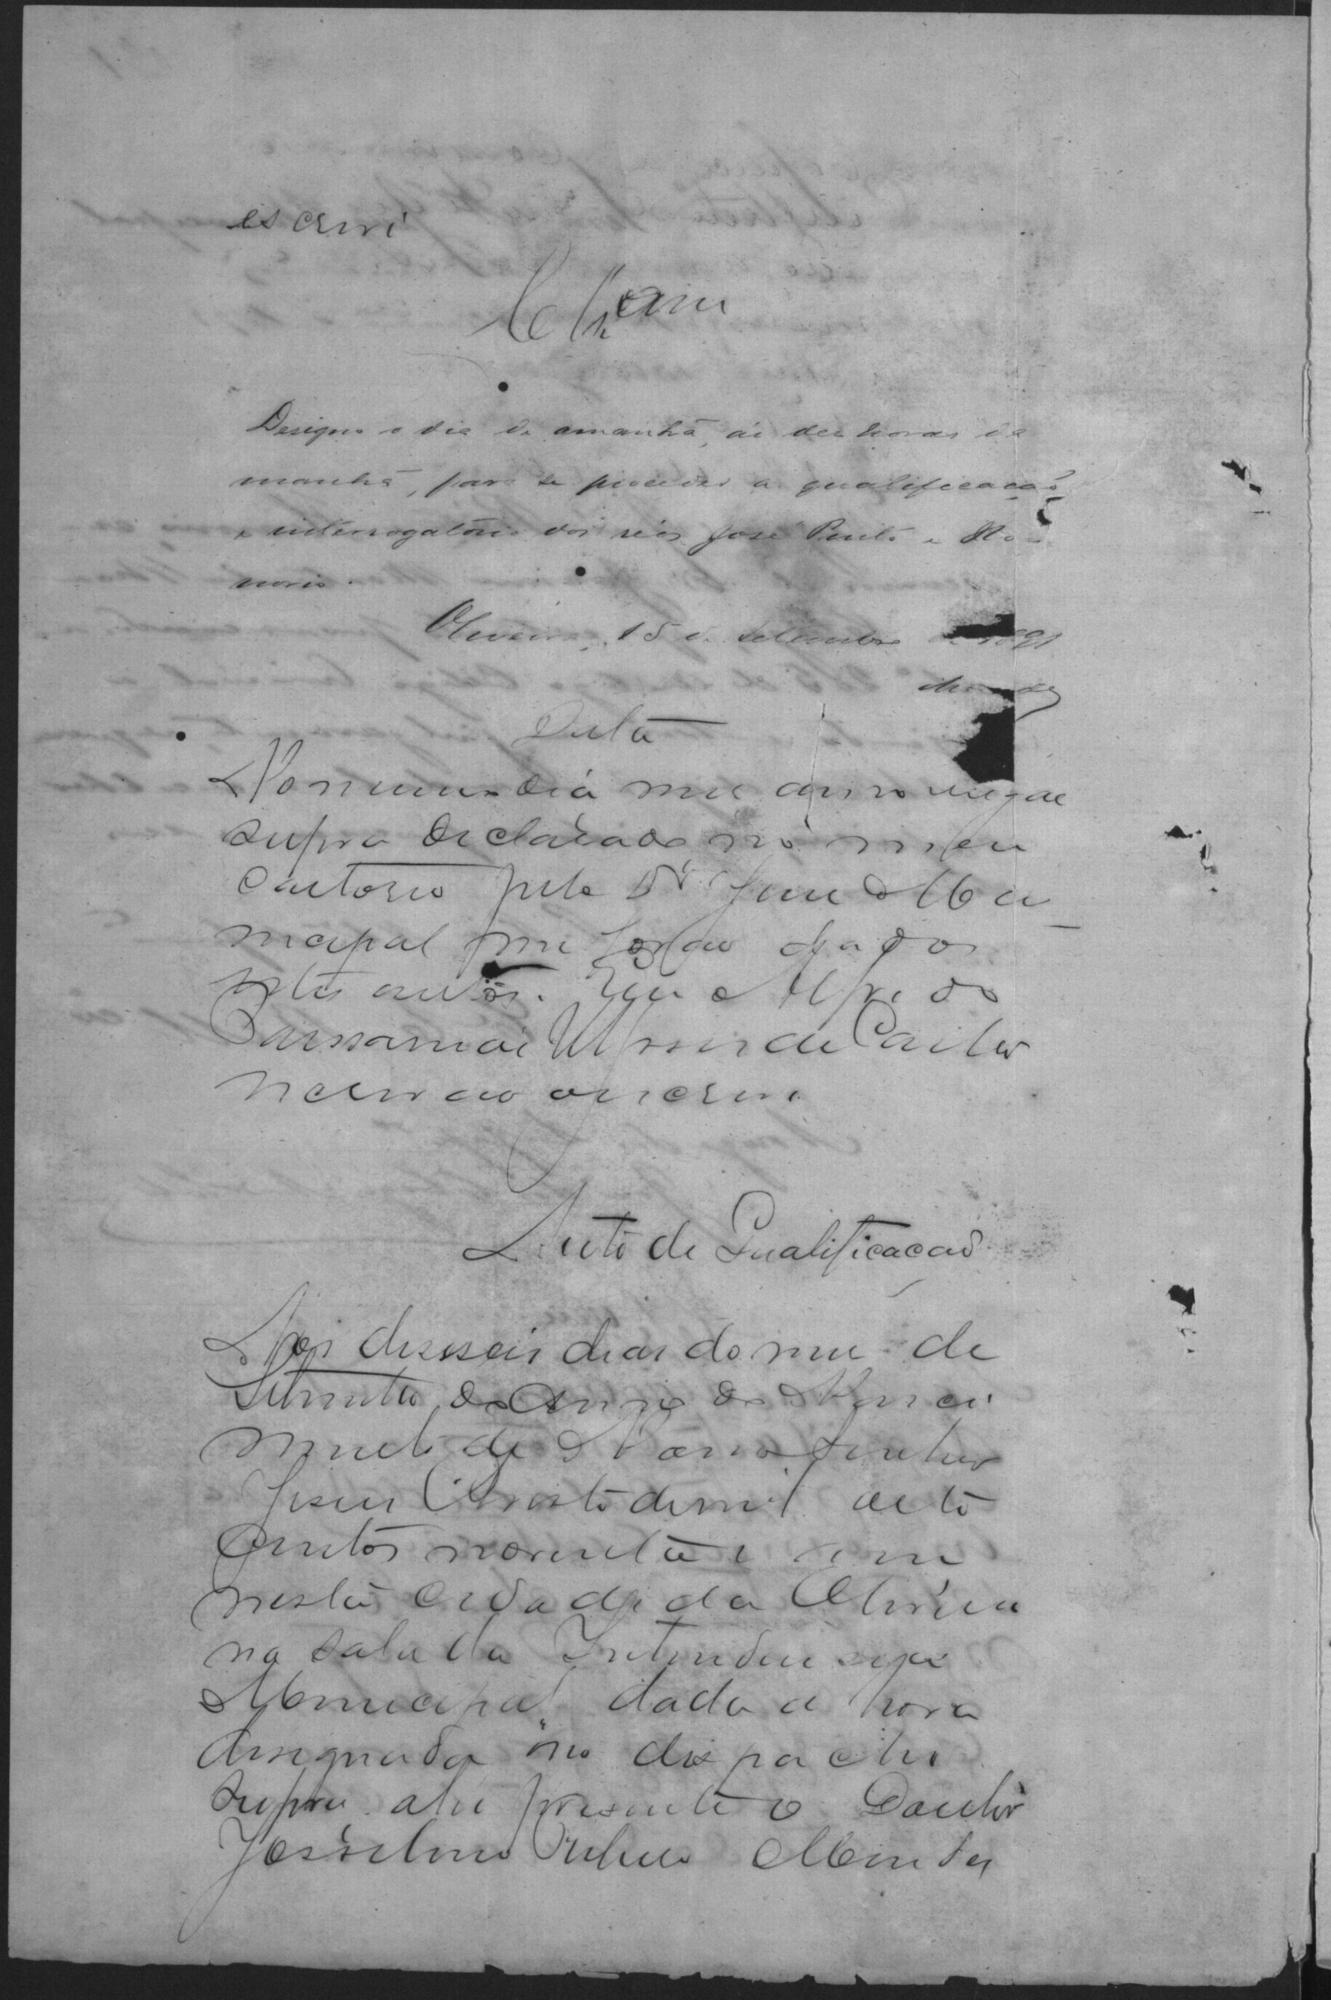 escrivi
Designo o dia de amanhã, ás dez horas da
manhã, para se proceder a qualificação
e interrogatorio dos réos José Pinto e Ho-
norio.
Oliveira, 15 de setembro de 1891
Mendes
Data
No mesmo dia mez anno e lugar
supra declarado no meu
cartorio pelo Dr Juiz Mu-
nicipal me forão dados
estes autos. Eu Alfredo
de Castro
escrivão o escrevi
Auto de Qualificacão
Aos deseseis dias do mez de
Setembro do Anno do Nasci
mento de Nosso Senhor
Jesus Christo de mil oito
centos noventa e um
nesta cidade da Oliveira
na sala da Intendencia
Municipal dada a hora
designada no despacho
supra ahi presente o Doutor
Josselino Mendes